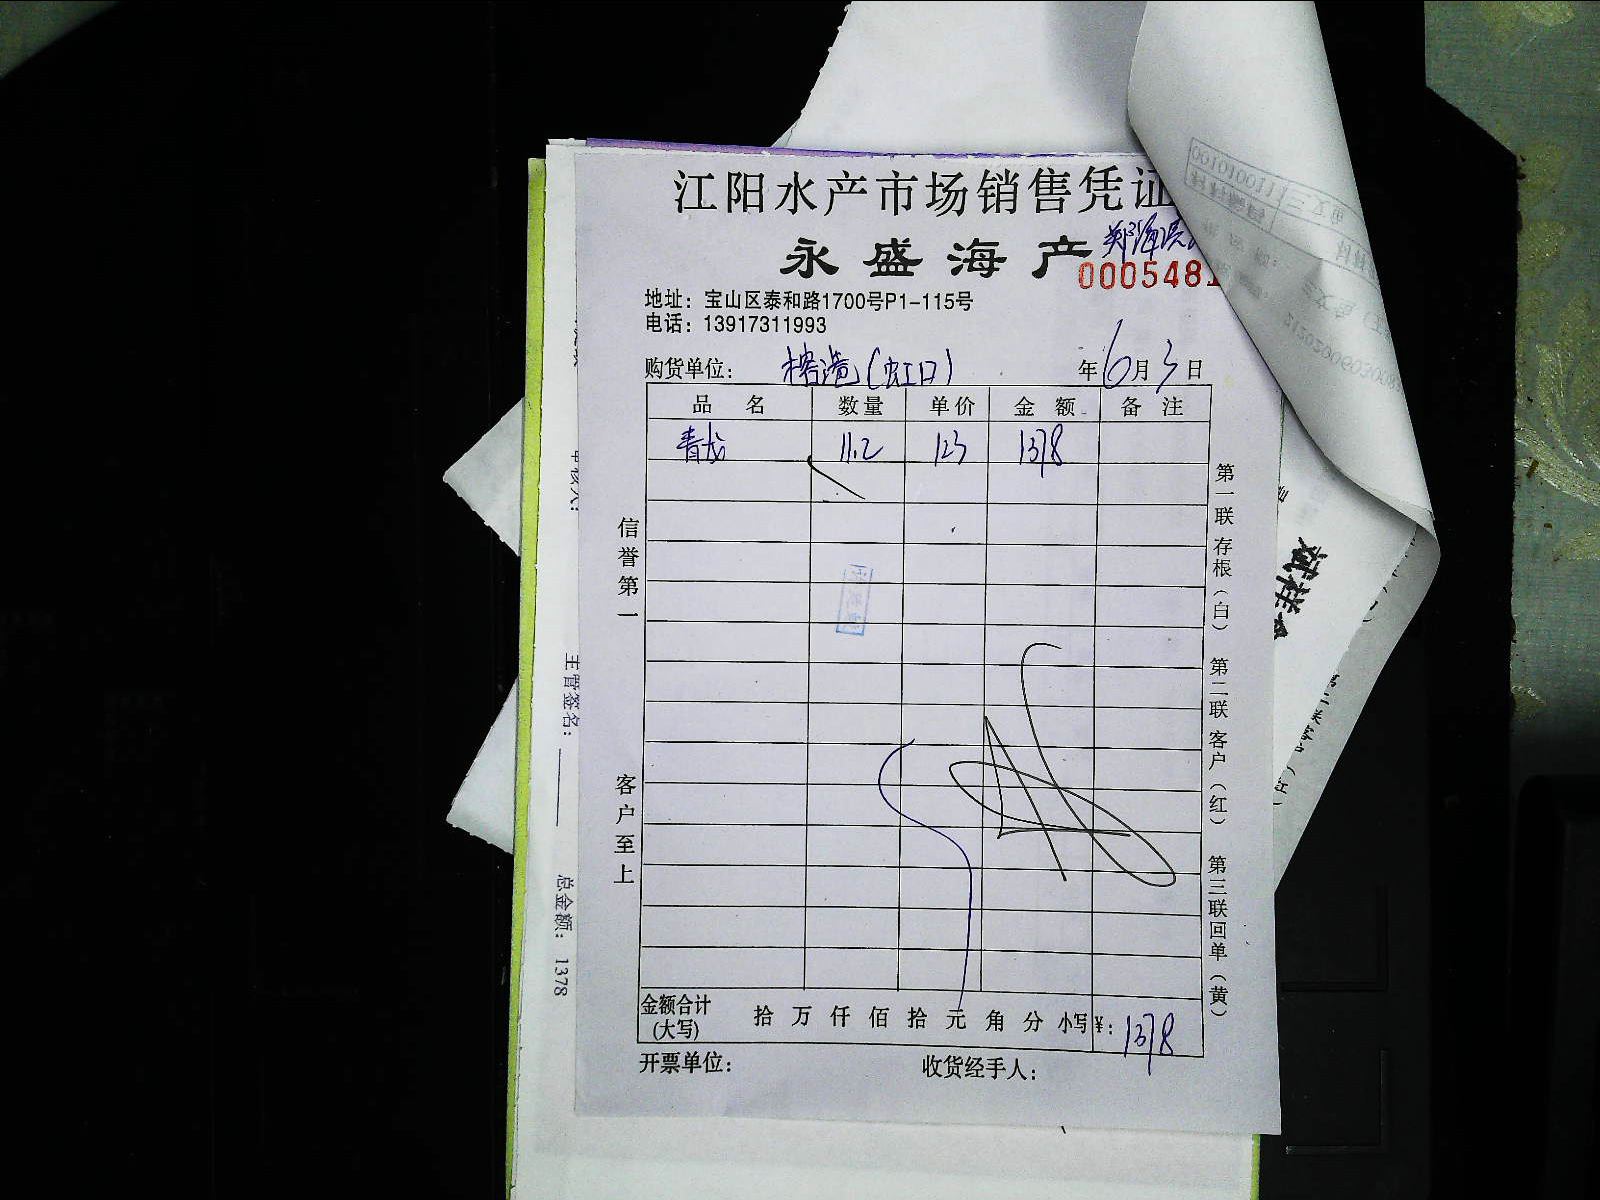 江阳水产市场销售凭证
永盛海产
0005481
地址：宝山区泰和路1700号P1-115号
电话：13917311993
购货单位： (虹口) 年6月3日
品名 数量 单价 金额 备注
青龙 11.2 123 1378
信誉第一
客户至上
第一联存根（白） 第二联客户（红） 第三联回单（黄）
金额合计(大写) 拾万仟佰拾元角分 小写¥：1378
开票单位： 收货经手人：
主管签名：
总金额： 1378